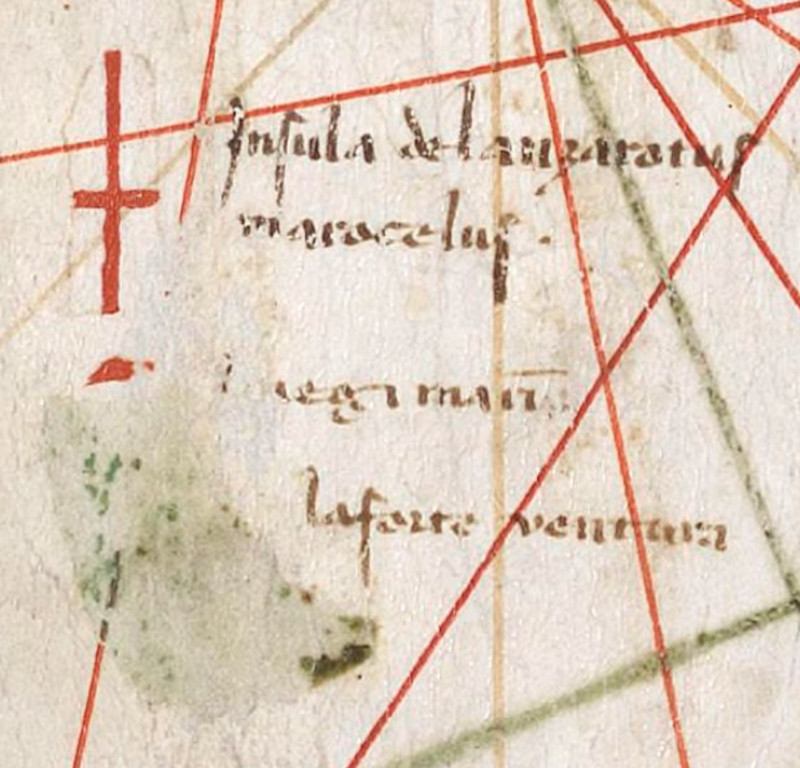 Insula de lanzarotus
marocelus.
vegi marĩ
laforte ventura